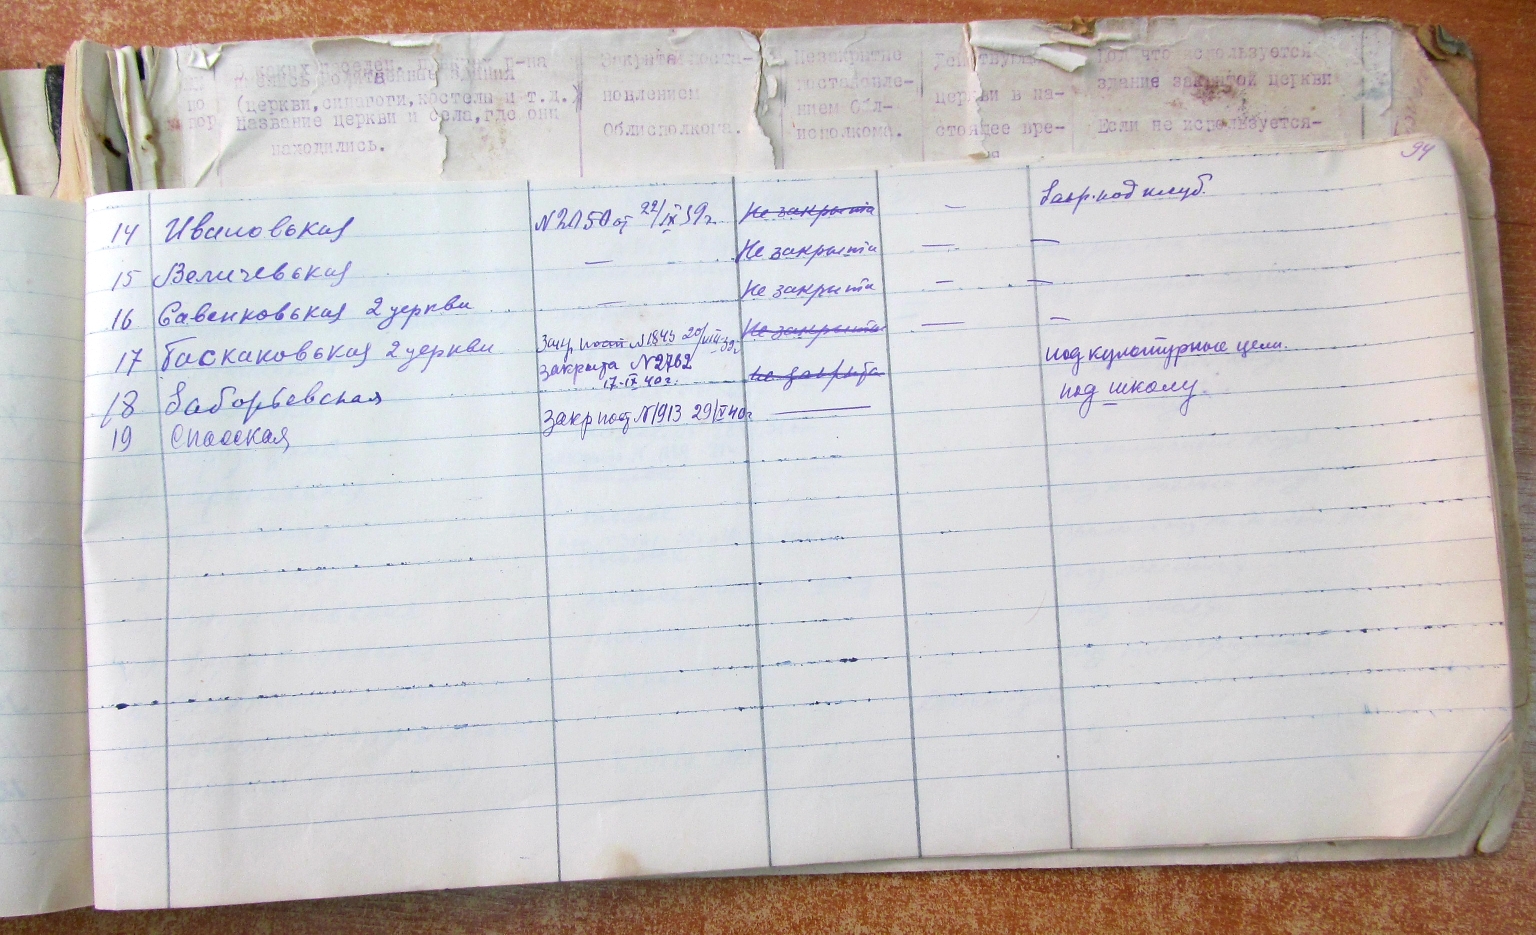 (церкви, синагоги, костела и т.д.)
Название церкви и села, где они
находились.
новлением
Облисполкома.
Незакрытые
постановле-
нием Обл-
исполкома.
церкви в на-
стоящее вре-
используется
здание закрытой церкви
Если не используется-
94
14 Ивановская N2150 от 22/IX 39 г. Не закрыта — Закр. под клуб.
15 Величевская — Не закрыта — —
16 Савенковская 2 церкви — Не закрыта — —
17 Баскаковская 2 церкви Закр. пост N1845 20/VIII-39г Не закрыта — —
18 Заборьевская закрыта N2762 17-IX 40 г. Не закрыта под культурные цели.
19 Спасская Закр пост N1913 29/V 40г — под школу.